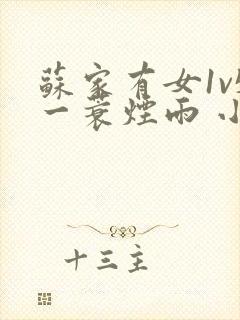 蘇家有女1v
一蓑煙雨 小
十三主